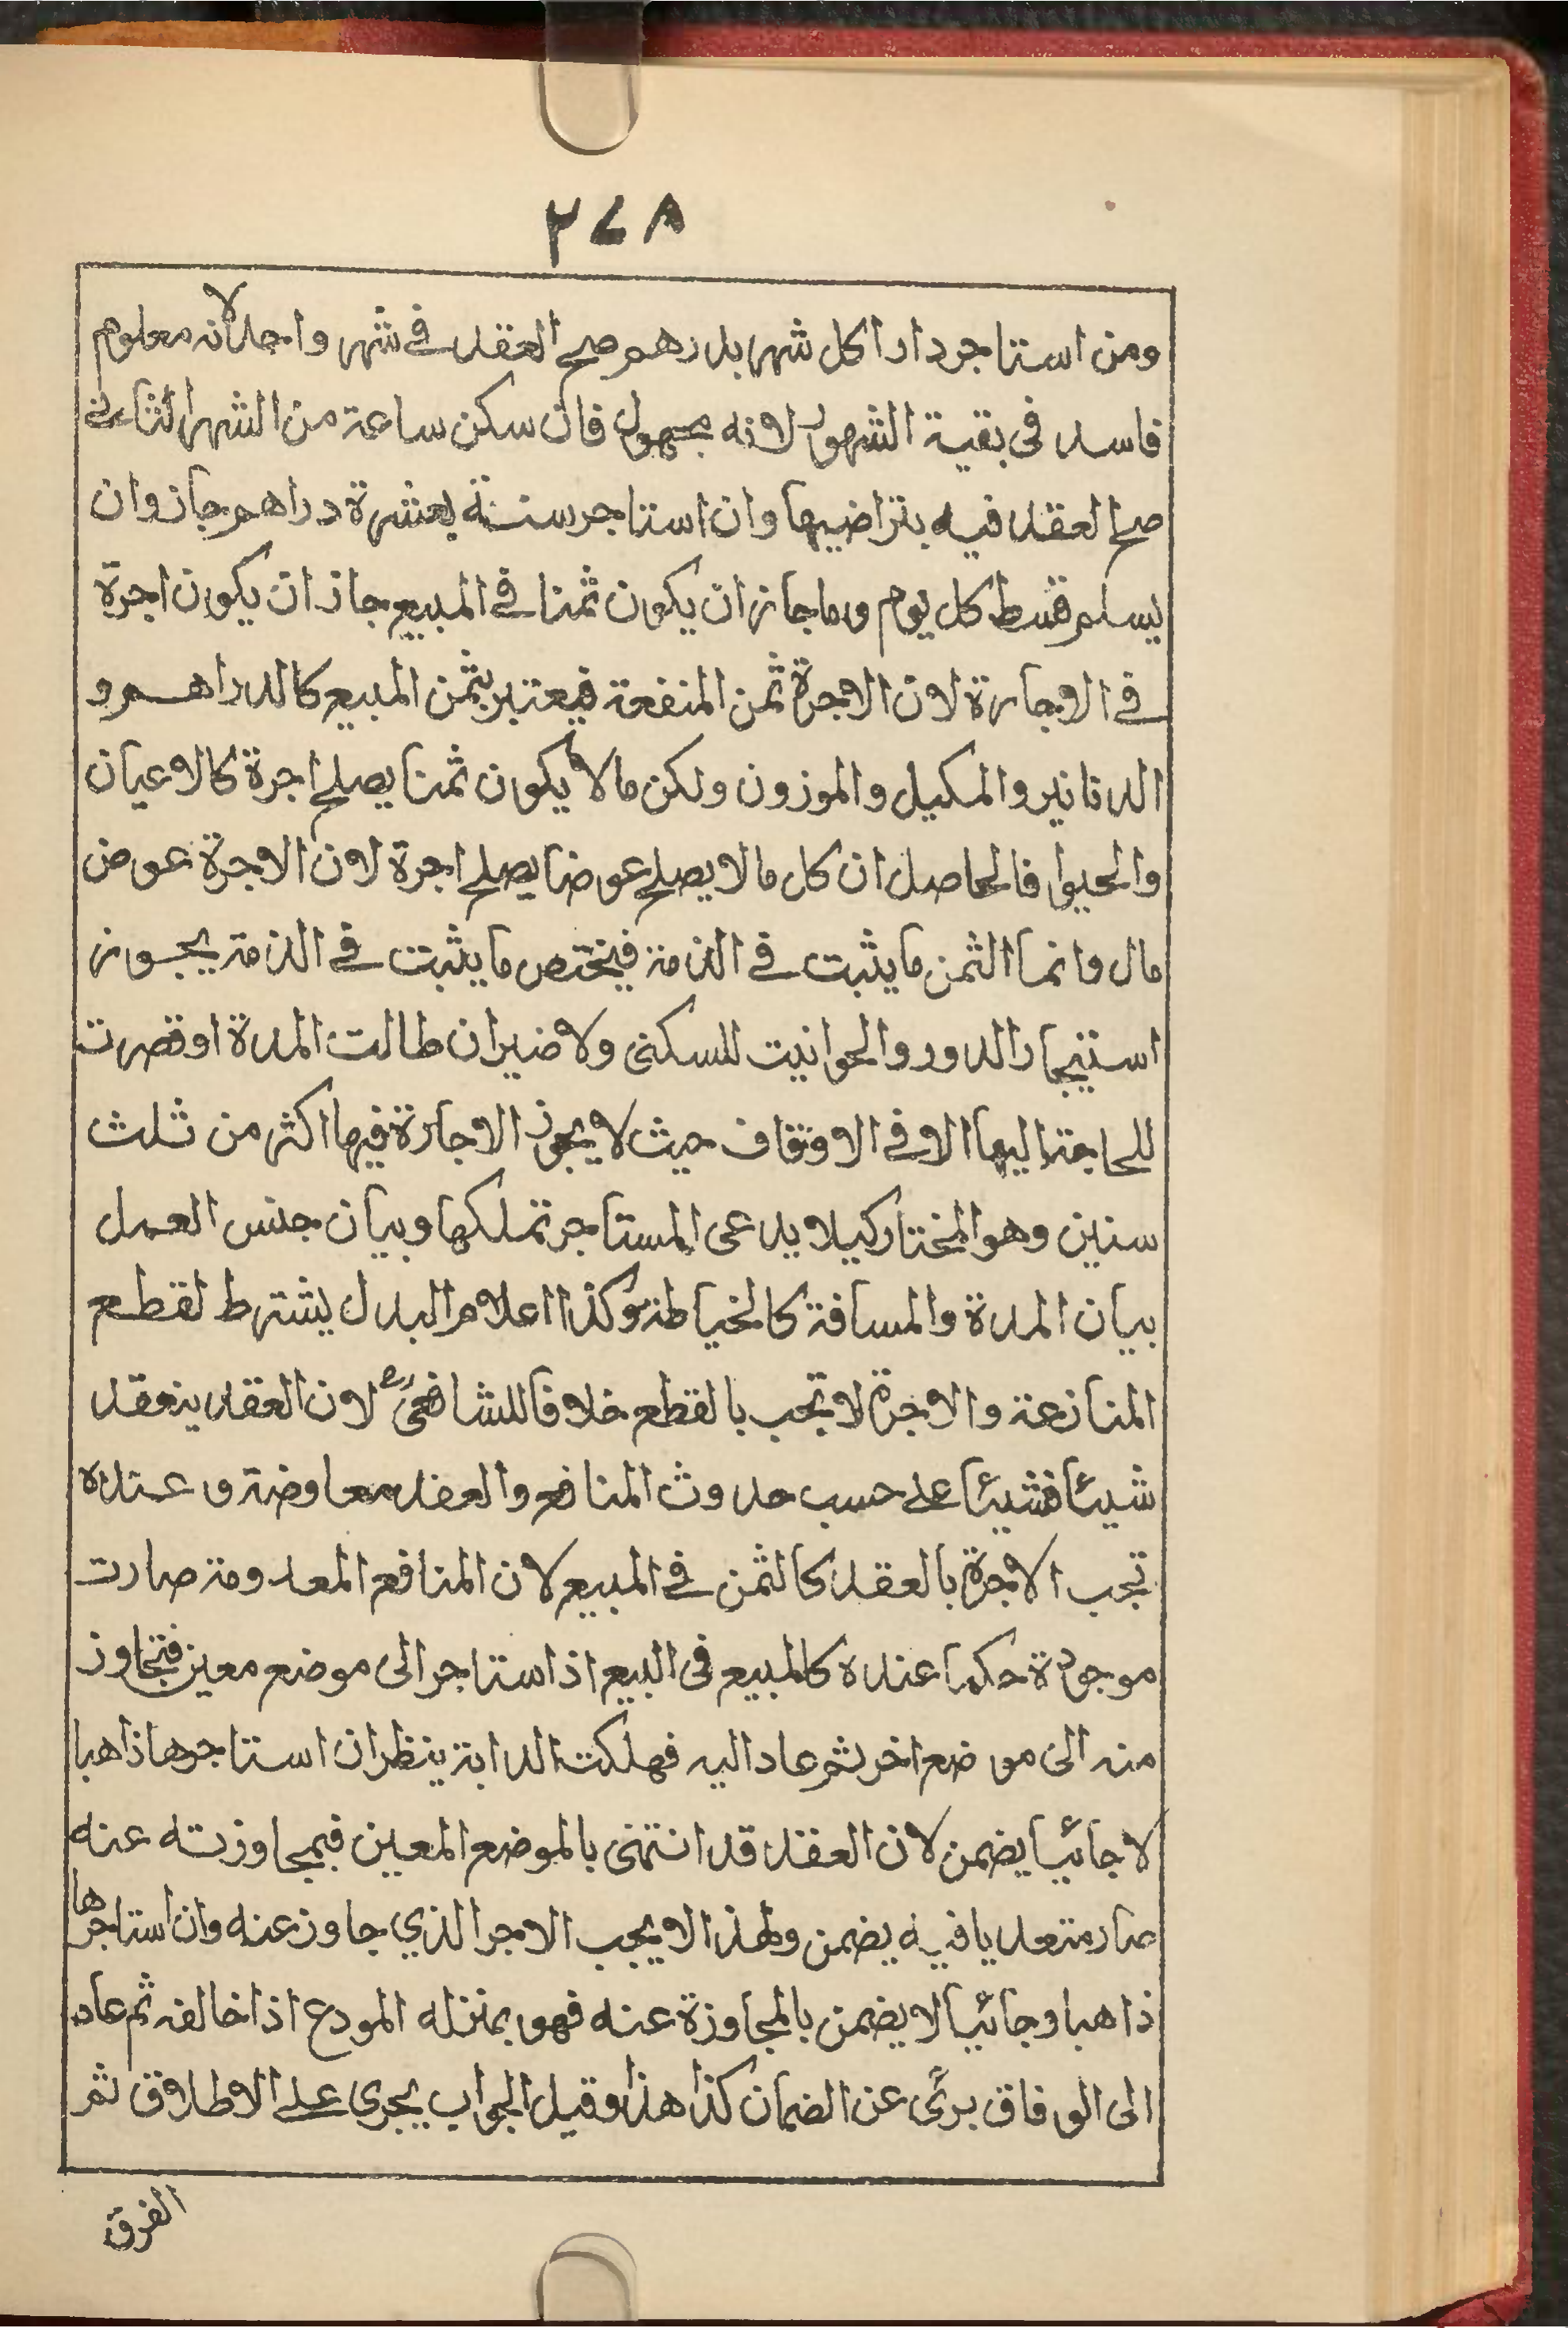 ٢٧٨
ومن استاجر دارا كل شهر بدرهم صح العقد في شهر واحد لانه معلوم
فاسد فى بقية الشهور لانه مجهول فان سكن ساعة من الشهر الثاني
صح العقد فيه بتراضيهما وان استاجر سنة بعشرة دراهم جاز وان
يسلم قسط كل يوم وما جاز ان يكون ثمنا في المبيع جاز ان يكون اجرة
في الاجارة لان الاجرة ثمن المنفعة فيعتبر بثمن المبيع كالدراهم و
الدنانير والمكيل والموزون ولكن ما لا يكون ثمنا يصلح اجرة كالاعيان
والحيوا فالحاصل ان كل ما لا يصلح عوضا يصلح اجرة لان الاجرة عوض
مال وانما الثمن ما يثبت في الذمة فيختص ما يثبت في الذمة يجوز
استيجار الدور والحوانيت للسكنى ولا ضير ان طالت المدة او قصرت
للحاجة اليها الا في الاوقاف حيث لا يجوز الاجارة فيها اكثر من ثلث
سنين وهو المختار كيلا يدعى المستاجر تملكها وبيان جنس العمل
بيان المدة والمسافة كالخياطة وكذا اعلام البدل يشترط لقطع
المنازعة والاجرة لا تجب بالقطع خلافا للشافعى رح لان العقد ينعقد
شيئا فشيئا على حسب حدوث المنافع والعقد معاوضة و عنده
تجب الاجرة بالعقد كالثمن في المبيع لان المنافع المعدومة صارت
موجودة حكما عنده كالمبيع فى البيع اذ استاجر الى موضع معين فتجاوز
منه الى موضع اخر ثم عاد اليه فهلكت الدابة ينظر ان استاجرها ذاهبا
لا جائيا يضمن لان العقد قد انتهى بالموضع المعين فبمجاوزته عنه
صار متعديا فيه يضمن ولهذا لا يجب الاجر الذي جاوز عنه وان استاجرها
ذاهبا وجائيا لا يضمن بالمجاوزة عنه فهو بمنزله المودع اذا خالف ثم عاد
الى الوفاق برئ عن الضمان كذا هذا وقيل الجواب يجرى على الاطلاق ثم
الفرق